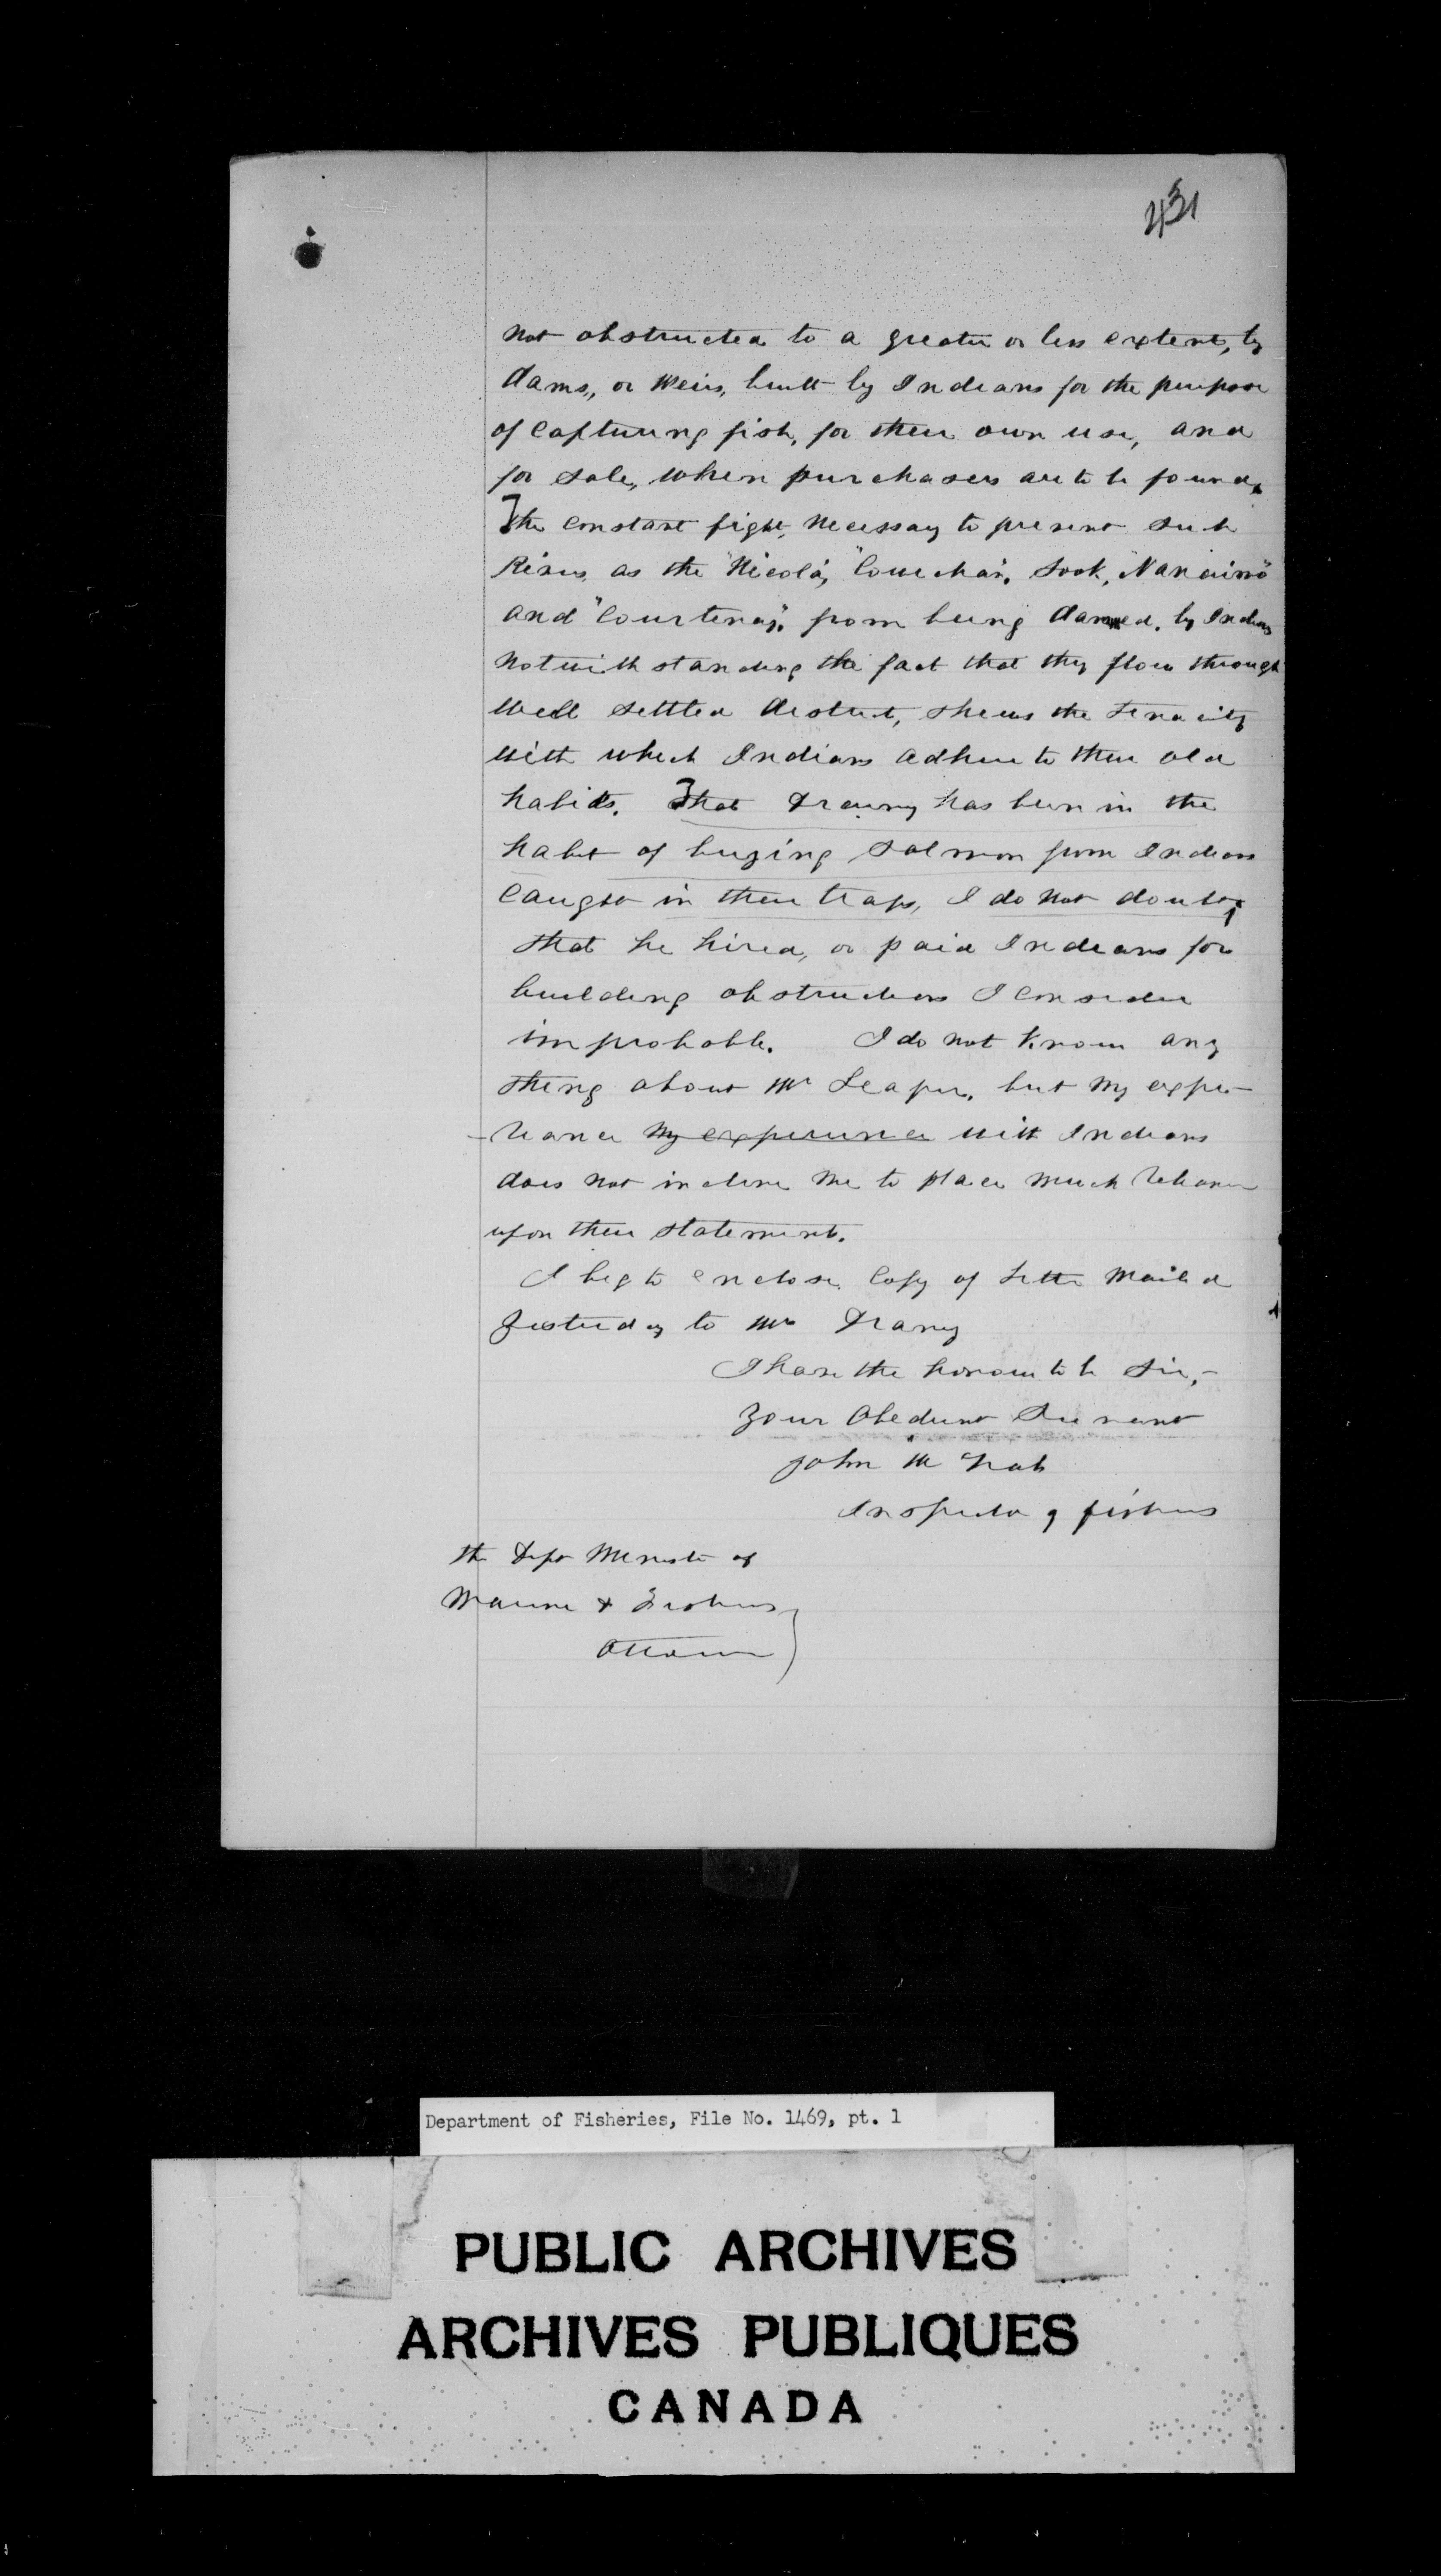 431
not obstructed to a greater or less extent, by
dams, or weirs, built by Indians for the purpose
of capturing fish, for their own use, and
for sale, when purchasers are to be found.
The constant fight, necessary to prevent such
Rivers, as the "Nicola", "Cowichan", Sook, "Nanaimo"
and "Courtenay". from being dammed, by Indians
notwithstanding the fact that they flow through
well settled district, shews the tenacity
with which Indians adhere to their old
habits. That Draney has been in the
habit of buying salmon from Indians
caught in their traps, I do not doubt,
that he hired, or paid Indians for
building obstructions I consider
improbable. I do not know any
thing about Mr Leaper, but my expe-
-rience my experience with Indians
does not incline me to place much reliance
upon their statement.
I beg to enclose copy of letter mailed
yesterday to Mr Draney
I have the honour to be Sir,-
Your Obedient Servant
John McNab
Inspector of fisheries
The Dept Minister of
Marine & Fisheries
Ottawa
Department of Fisheries, File No. 1469, pt. 1
PUBLIC ARCHIVES
ARCHIVES PUBLIQUES
CANADA